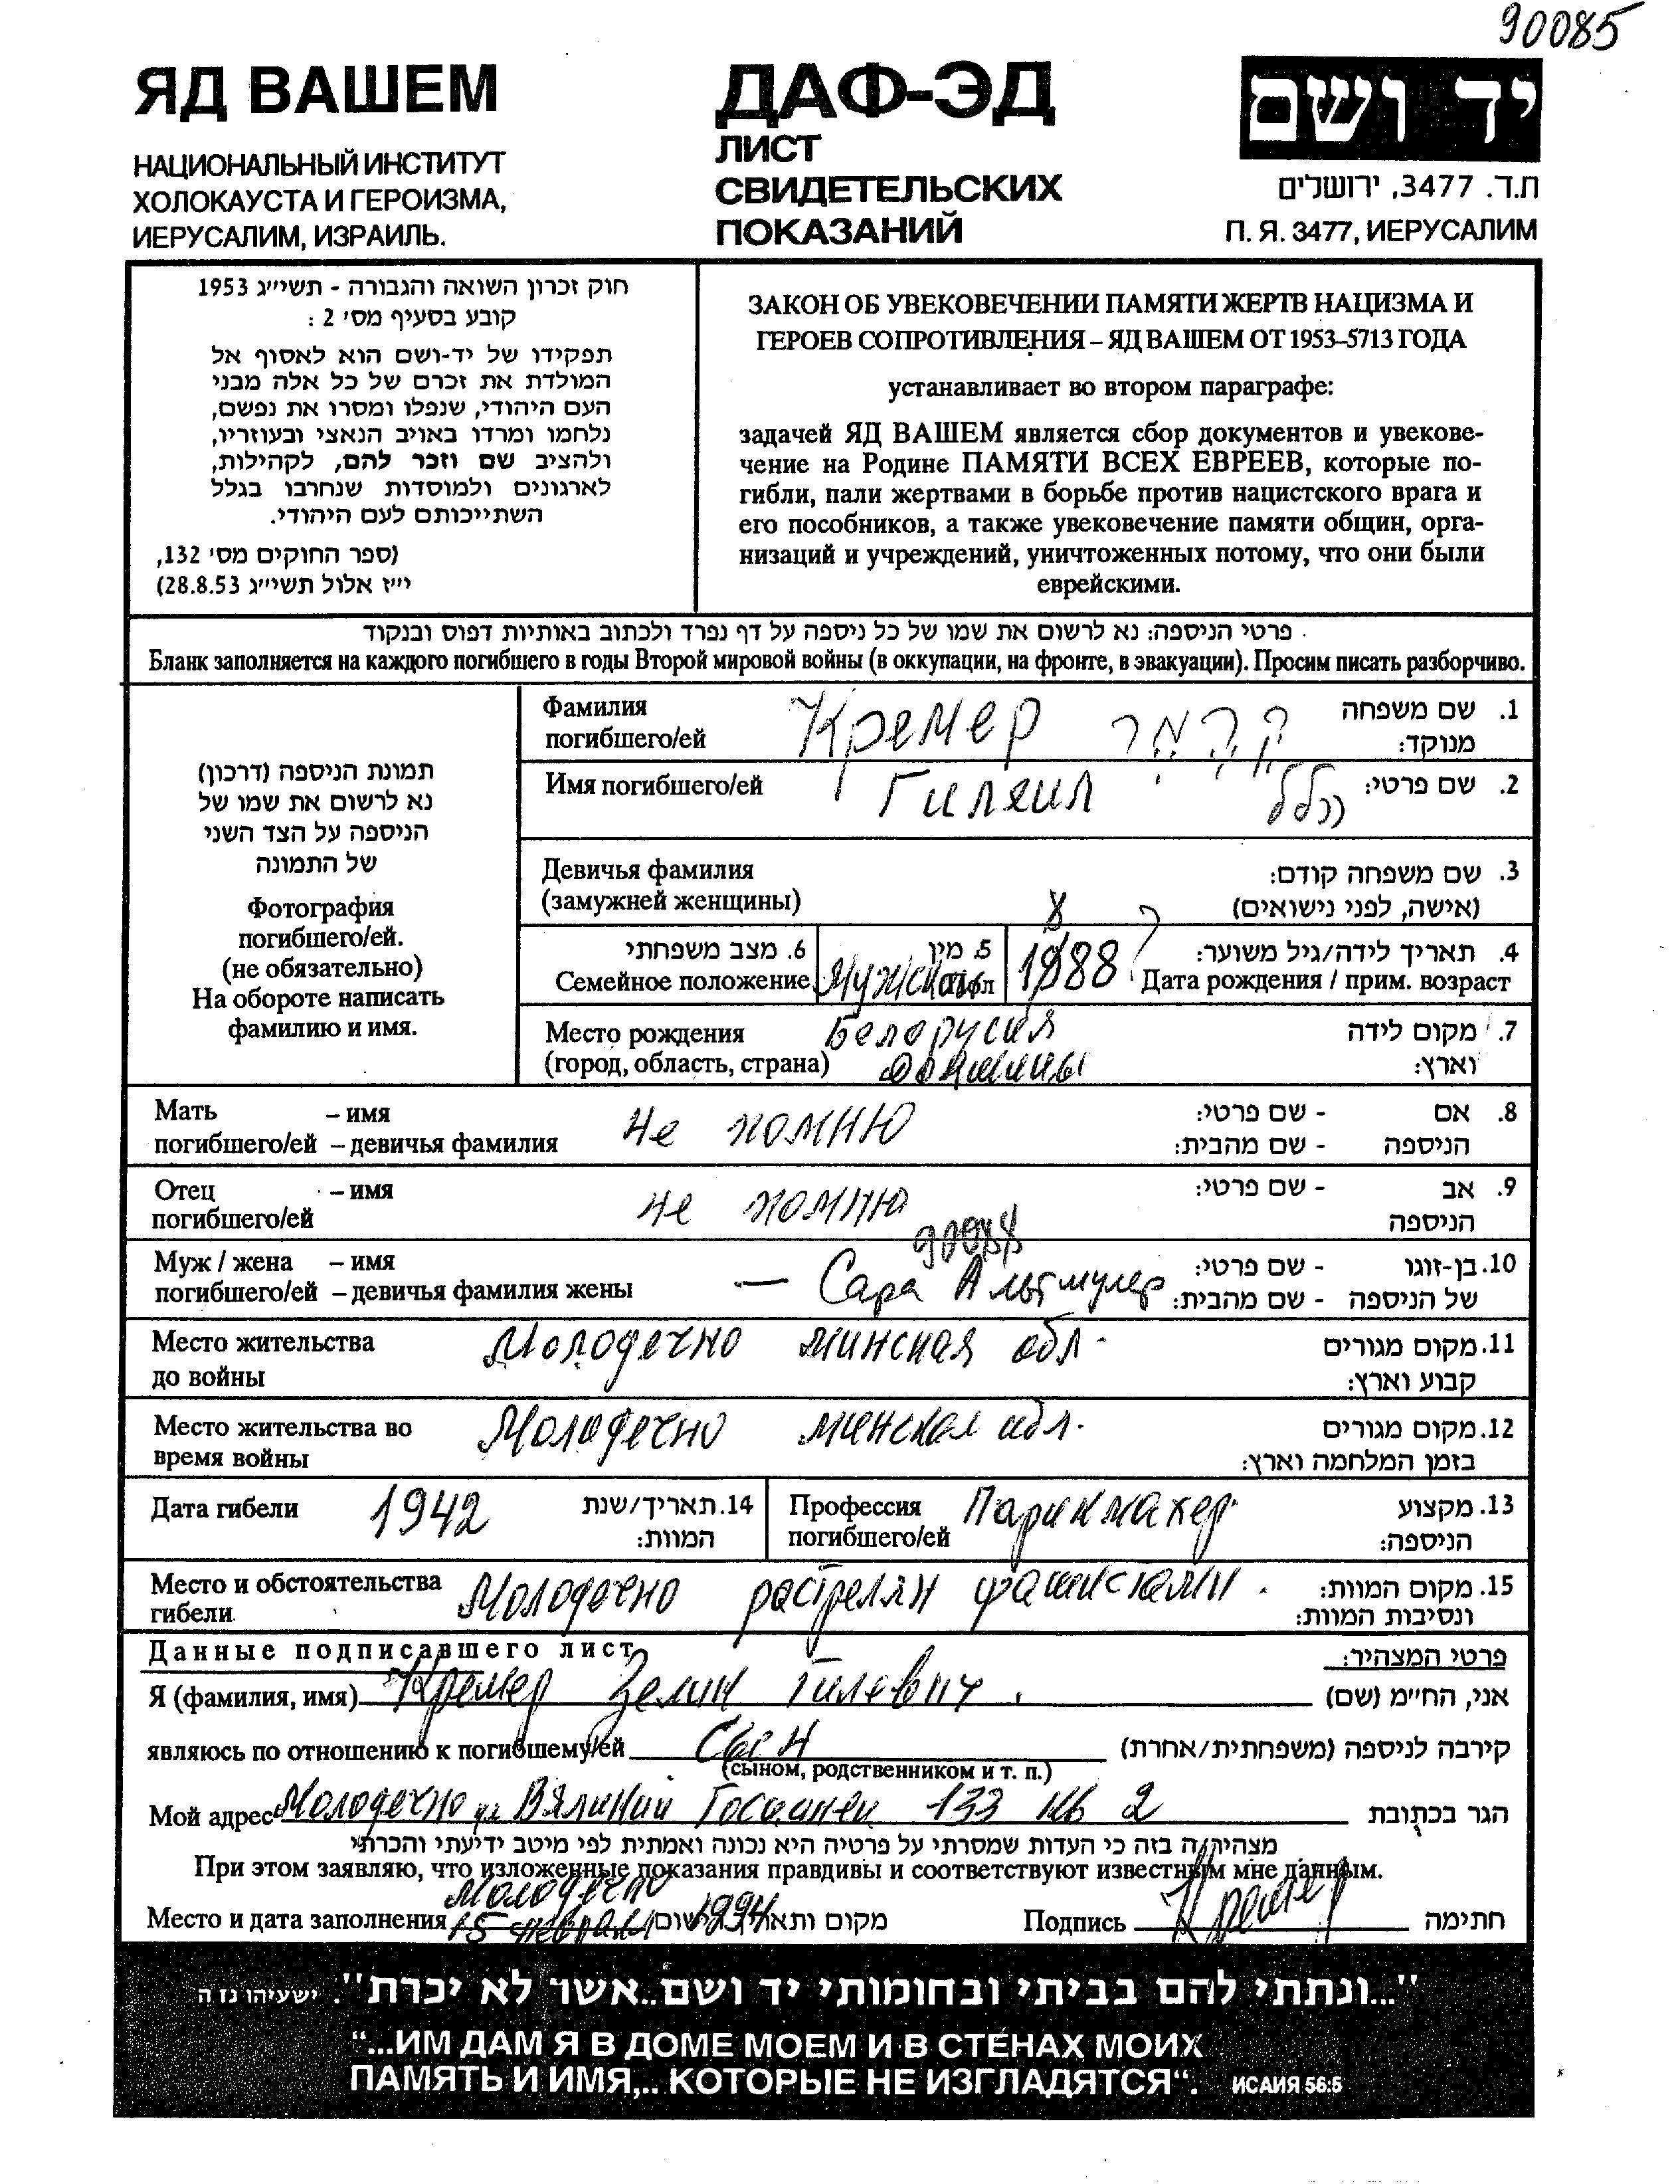 90085
ЯД ВАШЕМ
НАЦИОНАЛЬНЫЙ ИНСТИТУТ
ХОЛОКАУСТА И ГЕРОИЗМА,
ИЕРУСАЛИМ, ИЗРАИЛЬ.
ДАФ-ЭД
ЛИСТ
СВИДЕТЕЛЬСКИХ
ПОКАЗАНИЙ
יד ושם
ת.ד. 3477, ירושלים
П. Я. 3477, ИЕРУСАЛИМ
חוק זכרון השואה והגבורה - תשי״ג 1953
קובע בסעיף מס׳ 2 :
תפקידו של יד-ושם הוא לאסוף אל
המולדת את זכרם של כל אלה מבני
העם היהודי, שנפלו ומסרו את נפשם,
נלחמו ומרדו באויב הנאצי ובעוזריו,
ולהציב שם וזכר להם, לקהילות,
לארגונים ולמוסדות שנחרבו בגלל
השתייכותם לעם היהודי.
(ספר החוקים מס׳ 132,
י״ז אלול תשי״ג 28.8.53)
ЗАКОН ОБ УВЕКОВЕЧЕНИИ ПАМЯТИ ЖЕРТВ НАЦИЗМА И
ГЕРОЕВ СОПРОТИВЛЕНИЯ – ЯД ВАШЕМ ОТ 1953–5713 ГОДА
устанавливает во втором параграфе:
задачей ЯД ВАШЕМ является сбор документов и увекове-
чение на Родине ПАМЯТИ ВСЕХ ЕВРЕЕВ, которые по-
гибли, пали жертвами в борьбе против нацистского врага и
его пособников, а также увековечение памяти общин, орга-
низаций и учреждений, уничтоженных потому, что они были
еврейскими.
פרטי הניספה: נא לרשום את שמו של כל ניספה על דף נפרד ולכתוב באותיות דפוס ובנקוד
Бланк заполняется на каждого погибшего в годы Второй мировой войны (в оккупации, на фронте, в эвакуации). Просим писать разборчиво.
תמונת הניספה (דרכון)
נא לרשום את שמו של
הניספה על הצד השני
של התמונה
Фотография
погибшего/ей.
(не обязательно)
На обороте написать
фамилию и имя.
Фамилия Кремер קרמר 1. שם משפחה
погибшего/ей מנוקד:
Имя погибшего/ей Гилеил הלל 2. שם פרטי:
Девичья фамилия 3. שם משפחה קודם:
(замужней женщины) (אישה, לפני נישואים)
6. מצב משפחתי 5. מין 4. תאריך לידה/גיל משוער:
Семейное положение Мужской Пол 1888 Дата рождения / прим. возраст
Место рождения Белорусия 7. מקום לידה
(город, область, страна) Докшицы וארץ:
Мать – имя Не помню - שם פרטי: 8. אם
погибшего/ей – девичья фамилия - שם מהבית: הניספה
Отец – имя Не помню - שם פרטי: 9. אב
погибшего/ей הניספה
90088
Муж / жена – имя - שם פרטי: 10. בן-זוגו
погибшего/ей – девичья фамилия жены — Сара Альтмулер - שם מהבית: של הניספה
Место жительства Молодечно минская обл. 11. מקום מגורים
до войны קבוע וארץ:
Место жительства во Молодечно минская обл. 12. מקום מגורים
время войны בזמן המלחמה וארץ:
Дата гибели 1942 14. תאריך/שנת המוות:
Профессия погибшего/ей Парикмахер 13. מקצוע הניספה:
Место и обстоятельства Молодечно растрелян фашистами. 15. מקום המוות:
гибели. ונסיבות המוות:
Данные подписавшего лист פרטי המצהיר:
Я (фамилия, имя) Кремер Зелик Гилевич. אני, הח״מ (שם)
являюсь по отношению к погибшему/ей Сын קירבה לניספה (משפחתית/אחרת)
(сыном, родственником и т. п.)
Мой адрес Молодечно ул Вялики Госцинец 133 кв 2 הגר בכתובת
מצהיר/ה בזה כי העדות שמסרתי על פרטיה היא נכונה ואמתית לפי מיטב ידיעתי והכרתי
При этом заявляю, что изложенные показания правдивы и соответствуют известным мне данным.
Молодечно
Место и дата заполнения 15 февраля 1994 מקום ותאריך רישום Подпись Кремер חתימה
"...ונתתי להם בביתי ובחומותי יד ושם..אשר לא יכרת". ישעיהו נו ה
“...ИМ ДАМ Я В ДОМЕ МОЕМ И В СТЕНАХ МОИХ
ПАМЯТЬ И ИМЯ,.. КОТОРЫЕ НЕ ИЗГЛАДЯТСЯ“. ИСАИЯ 56:5